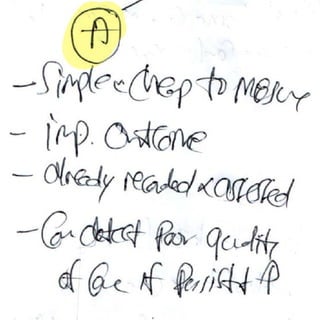 A
- Simple & Cheap to measure
- imp. Outcome
- already recorded & assessed
- Can detect poor quality
of Care if Persist